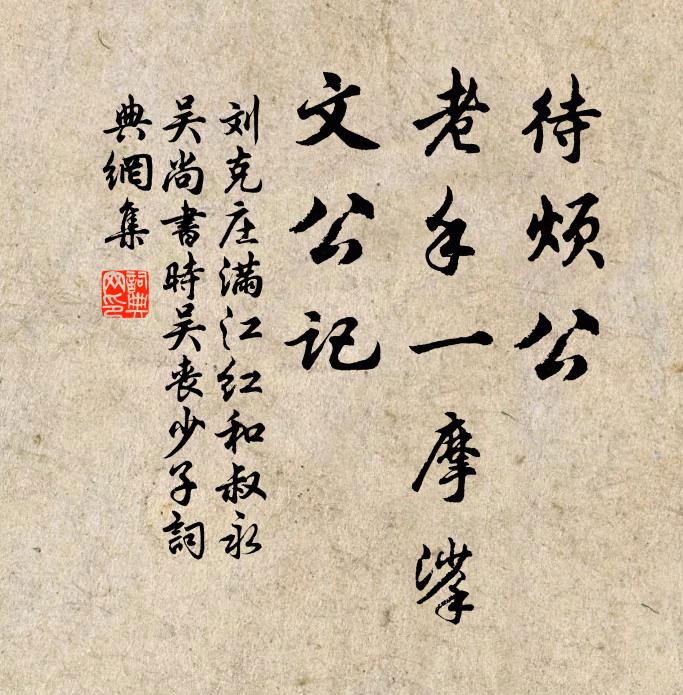 待烦公
老手一摩挲
文公记
刘克庄满江红和叔永
吴尚书時吴丧少子詞
典網集
詞典
网印